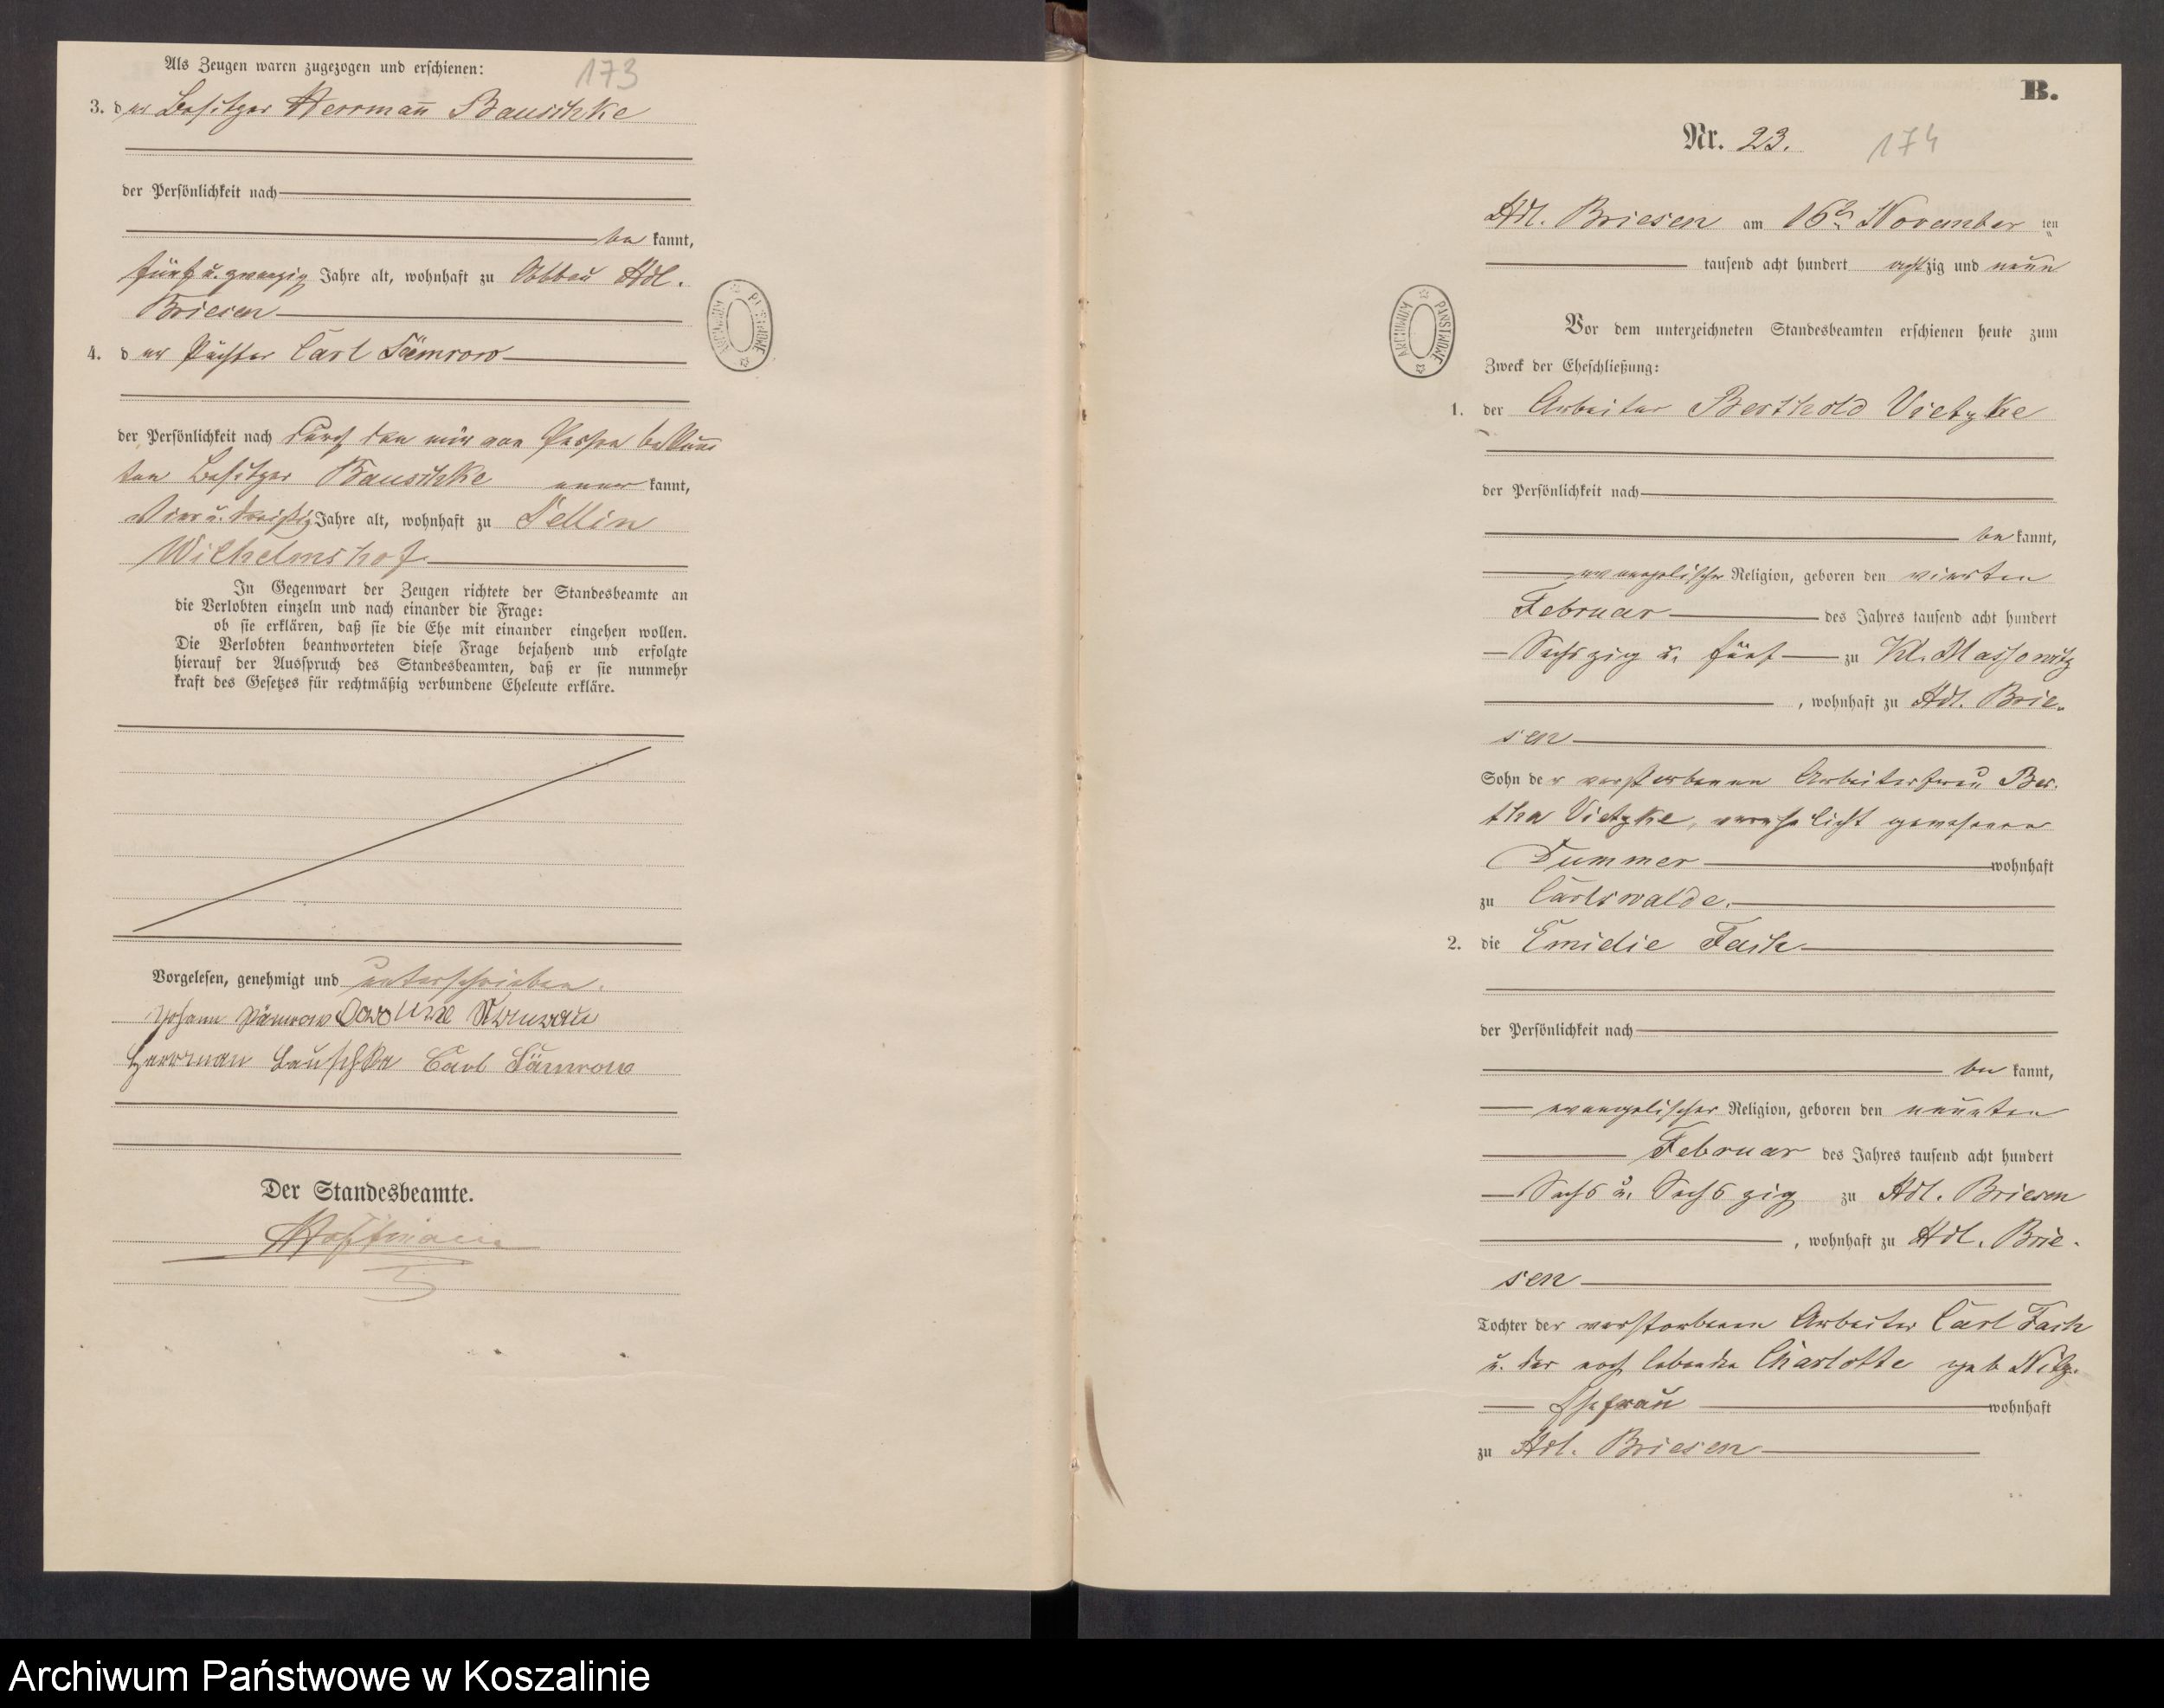 Als Zeugen waren zugezogen und erschienen:
173
3. der Besitzer Herrmann Bauschke
der Persönlichkeit nach
be kannt,
fünf u. zwanzig Jahre alt, wohnhaft zu Abbau Adl.
Briesen
4. der Pächter Carl
der Persönlichkeit nach durch den mir von Person bekann
ten Besitzer Bauschke aner kannt,
Vier u. dreißig Jahre alt, wohnhaft zu Sellin
Wilhelmshof
In Gegenwart der Zeugen richtete der Standesbeamte an
die Verlobten einzeln und nach einander die Frage:
ob sie erklären, daß sie die Ehe mit einander eingehen wollen.
Die Verlobten beantworteten diese Frage bejahend und erfolgte
hierauf der Ausspruch des Standesbeamten, daß er sie nunmehr
kraft des Gesetzes für rechtmäßig verbundene Eheleute erkläre.
Vorgelesen, genehmigt und unterschrieben.
Johann
Herrman Bauschke Carl
Der Standesbeamte.
Hoffmann
ARCHIWUM PAŃSTWOWE
B.
Nr. 23.
174
Adl. Briesen am 16ten November ten
tausend acht hundert achtzig und neun
ARCHIWUM PAŃSTWOWE
Vor dem unterzeichneten Standesbeamten erschienen heute zum
Zweck der Eheschließung:
1. der Arbeiter Berthold Vietzke
der Persönlichkeit nach
be kannt,
evangelischer Religion, geboren den vierten
Februar des Jahres tausend acht hundert
Sechszig u. fünf zu Kl. Massowitz
, wohnhaft zu Adl. Brie-
sen
Sohn der verstorbenen Arbeiterfrau Ber-
tha Vietzke, verehelicht gewesene
Dummer wohnhaft
zu Carlswalde.
2. die Emidie Fach
der Persönlichkeit nach
be kannt,
evangelischer Religion, geboren den neunten
Februar des Jahres tausend acht hundert
Sechs u. Sechszig zu Adl. Briesen
, wohnhaft zu Adl. Brie-
sen
Tochter der verstorbenen Arbeiter Carl Fach
u. der noch lebenden Charlotte geb.
Ehefrau wohnhaft
zu Adl. Briesen
Archiwum Państwowe w Koszalinie